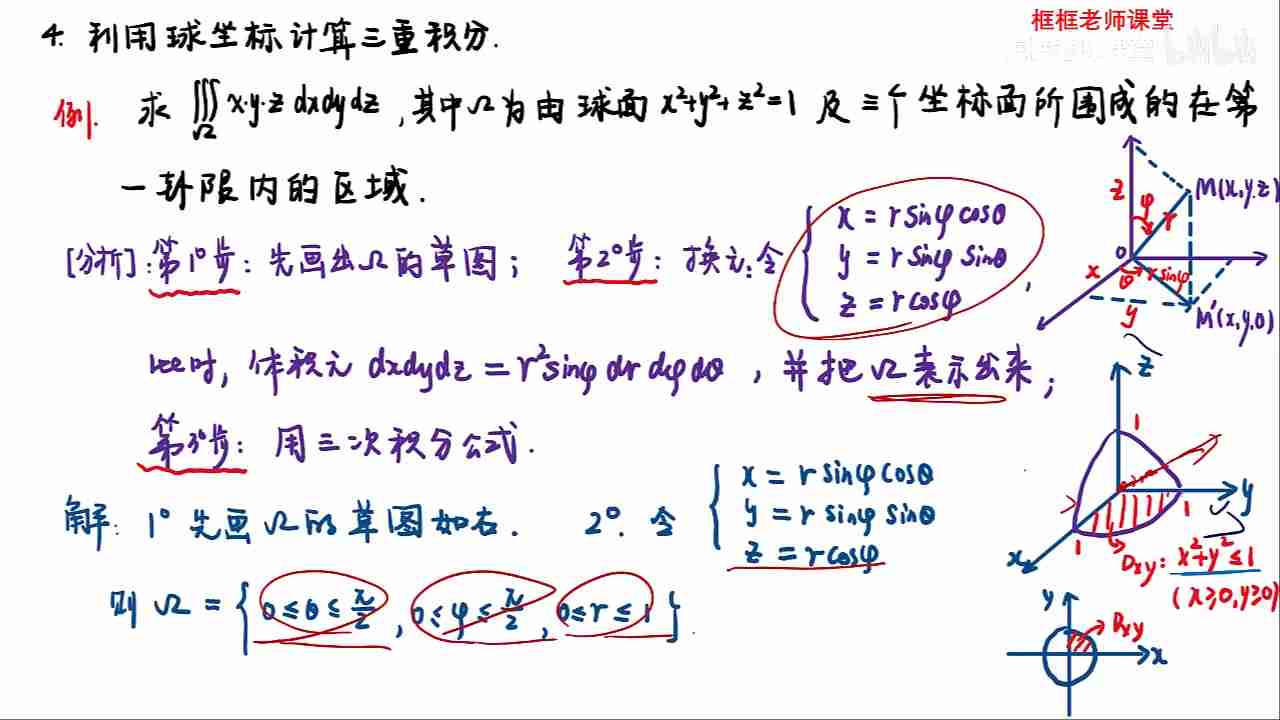 框框老师课堂
4. 利用球坐标计算三重积分.
例. 求 ∭Ω x·y·z dxdydz, 其中Ω为由球面 x²+y²+z²=1 及三个坐标面所围成的在第
一卦限内的区域.
[分析]: 第1°步: 先画出Ω的草图; 第2°步: 换元: 令 { x = r sinφ cosθ
y = r sinφ sinθ
z = r cosφ ,
此时, 体积元 dxdydz = r² sinφ dr dφ dθ, 并把Ω表示出来;
第3°步: 用三次积分公式.
解: 1° 先画Ω的草图如右. 2°. 令 { x = r sinφ cosθ
y = r sinφ sinθ
z = r cosφ
则 Ω = { 0 ≤ θ ≤ π/2, 0 ≤ φ ≤ π/2, 0 ≤ r ≤ 1 }.
z φ r M(x,y,z)
x 0 θ r sinφ
y M'(x,y,0)
z
1
y
1 1
x Dxy: x²+y² ≤ 1
(x≥0, y≥0)
y Dxy
x